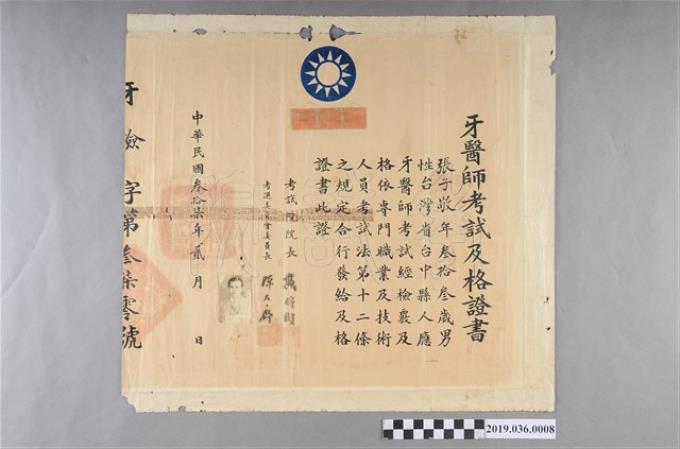 牙醫師考試及格證書
張子敬年叁拾叁歲男
性台灣省台中縣人應
牙醫師考試經檢覈及
格依專門職業及技術
人員考試法第十二條
之規定合行發給及格
證書此證
考試院院長 戴傳賢
考選委員會委員長 陳大齊
中華民國叁拾柒年貳月 日
牙檢字第叁柒零號
2019.036.0008